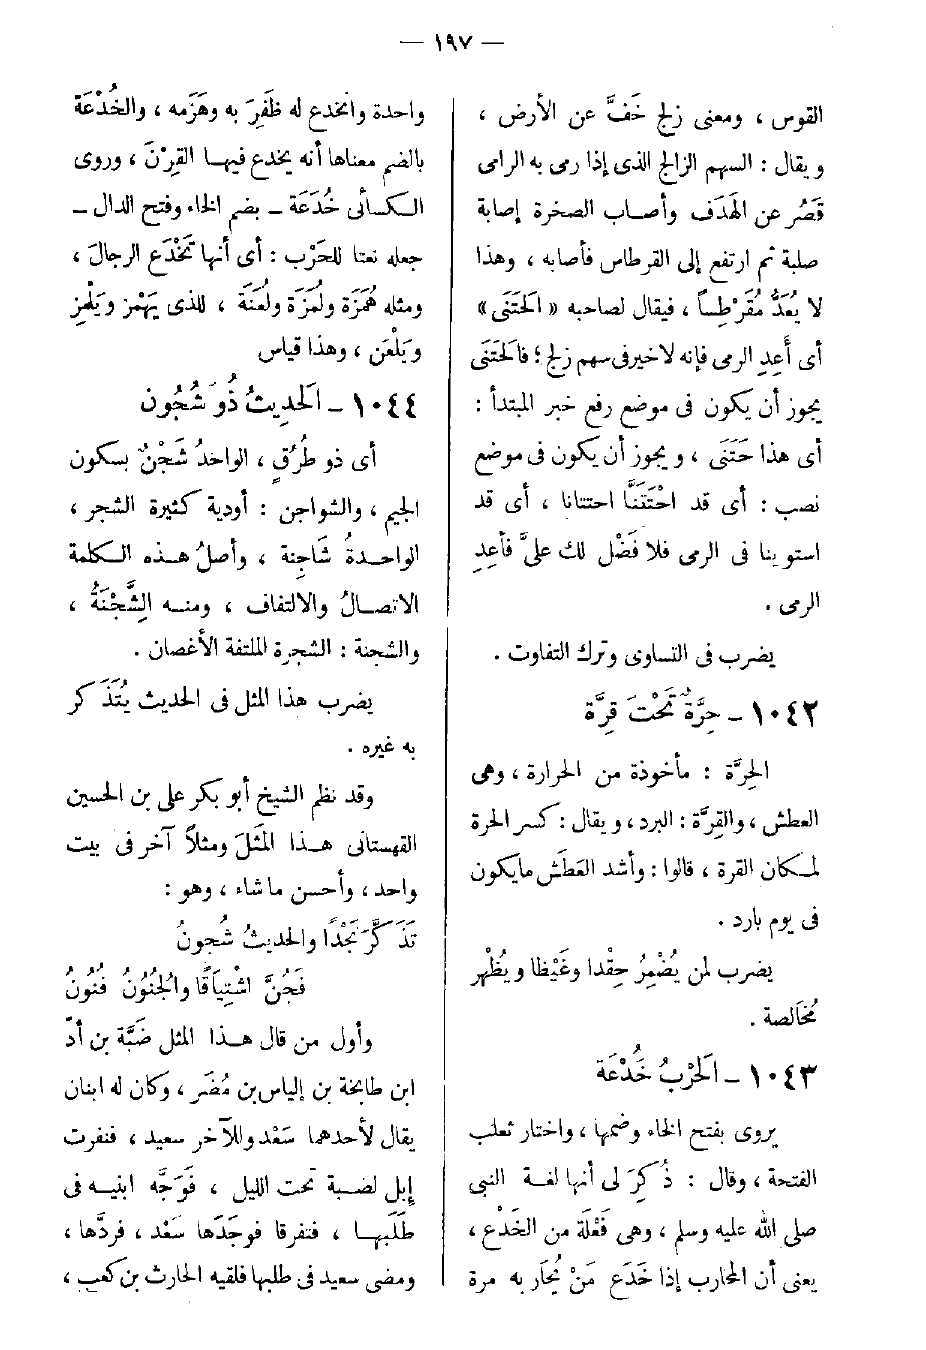 — ١٩٧ —
القوس ، ومعنى زلج خَفَّ عن الأرض ،
ويقال : السهم الزالج الذى إذا رمى به الرامى
قَصُر عن الهَدَف وأصاب الصخرة إصابة
صلبة ثم ارتفع إلى القرطاس فأصابه ، وهذا
لا يُعَدُّ مُقَرْطِساً ، فيقال لصاحبه « الحَتَنَى »
أى أَعِدِ الرمى فإنه لاخير فى سهم زلج ؛ فالحَتَنَى
يجوز أن يكون فى موضع رفع خبر المبتدأ :
أى هذا حَتَنَى ، ويجوز أن يكون فى موضع
نصب : أى قد احْتَتَنَّا احتتانا ، أى قد
استوينا فى الرمى فلا فَضْل لك علىَّ فأَعِدِ
الرمى .
يضرب فى التساوى وترك التفاوت .
١٠٤٢ – حِرَّةٌ تَحْتَ قِرَّة
الحِرَّة : مأخوذة من الحرارة ، وهى
العطش ، والقِرَّة : البرد ، ويقال : كسر الحرة
لمكان القرة ، قالوا : وأشد العَطَش مايكون
فى يوم بارد .
يضرب لمن يُضْمِرُ حِقْدا وغَيْظا ويُظْهِر
مُخَالصة .
١٠٤٣ – الحَرْبُ خُدْعَة
يروى بفتح الخاء وضمها ، واختار ثعلب
الفتحة ، وقال : ذُكِرَ لى أنها لغة النبى
صلى الله عليه وسلم ، وهى فَعْلَة من الخَدْع ،
يعنى أن المحارب إذا خَدَع مَنْ يُحَاربه مرة
واحدة وانخدع له ظَفِرَ به وهَزَمه ، والخُدْعَة
بالضم معناها أنه يخدع فيها القِرْنَ ، وروى
الكسائى خُدَعَة – بضم الخاء وفتح الدال –
جعله نعتا للحَرْب : أى أنها تَخْدَع الرجالَ ،
ومثله هُمَزَة ولُمَزَة ولُعَنَة ، للذى يَهْمِز ويَلْمِز
ويَلْعَن ، وهذا قياس
١٠٤٤ – الحَدِيثُ ذُو شُجُون
أى ذو طُرُقٍ ، الواحدُ شَجْنٌ بسكون
الجيم ، والشواجن : أودية كثيرة الشجر ،
الواحدةُ شَاجِنة ، وأصلُ هذه الكلمة
الاتصالُ والالتفاف ، ومنه الشِّجْنَةُ ،
والشجنة : الشجرة الملتفة الأغصان .
يضرب هذا المثل فى الحديث يُتَذَكر
به غيره .
وقد نظم الشيخ أبو بكر على بن الحسين
القهستانى هذا المَثَلَ ومثلاً آخر فى بيت
واحد ، وأحسن ماشاء ، وهو :
تَذَكَّرَ نَجْدًا والحديثُ شُجونُ
فَجُنَّ اشْتِيَاقًا والجُنُونُ فُنُونُ
وأول من قال هذا المثل ضَبَّة بن أدّ
ابن طابخة بن إلياس بن مُضَر ، وكان له ابنان
يقال لأحدهما سَعْد وللآخر سعيد ، فنفرت
إبل لضبة تحت الليل ، فَوَجَّه ابنيه فى
طَلَبها ، فتفرقا فوجَدَها سَعْد ، فردَّها ،
ومضى سعيد فى طلبها فلقيه الحارث بن كعب ،